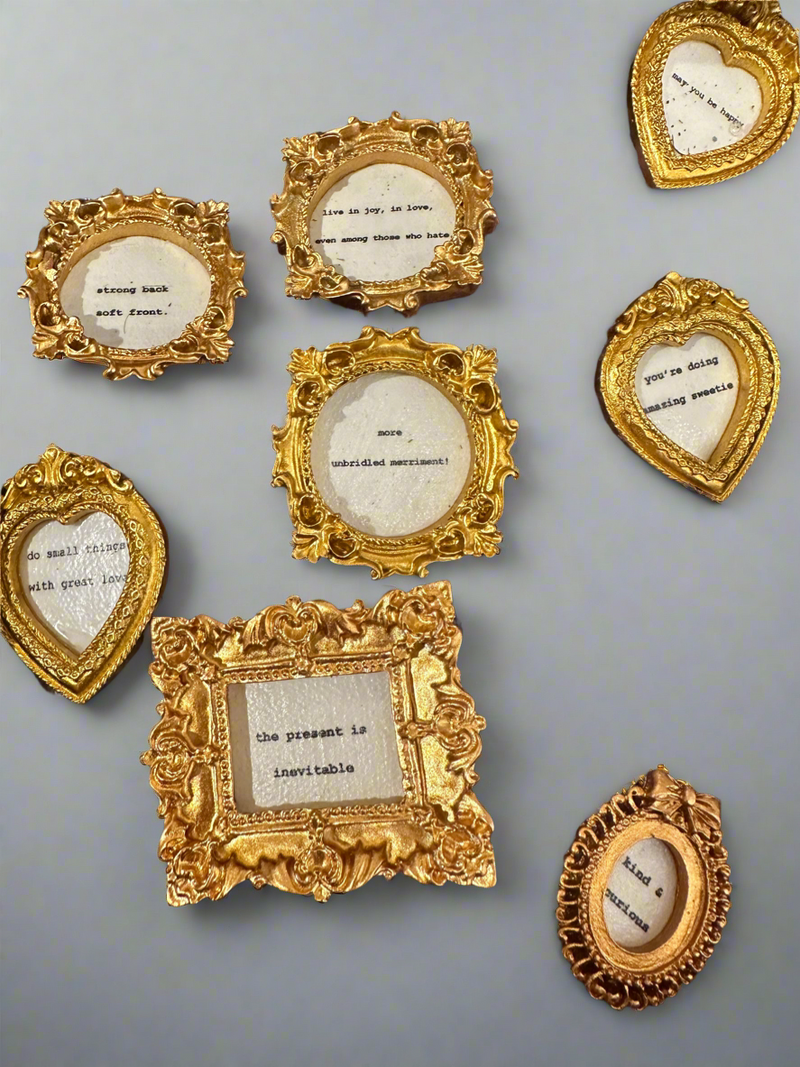 may you be happy
live in joy, in love,
even among those who hate
strong back
soft front.
you're doing
amazing sweetie
more
unbridled merriment!
do small things
with great love
the present is
inevitable
kind &
curious